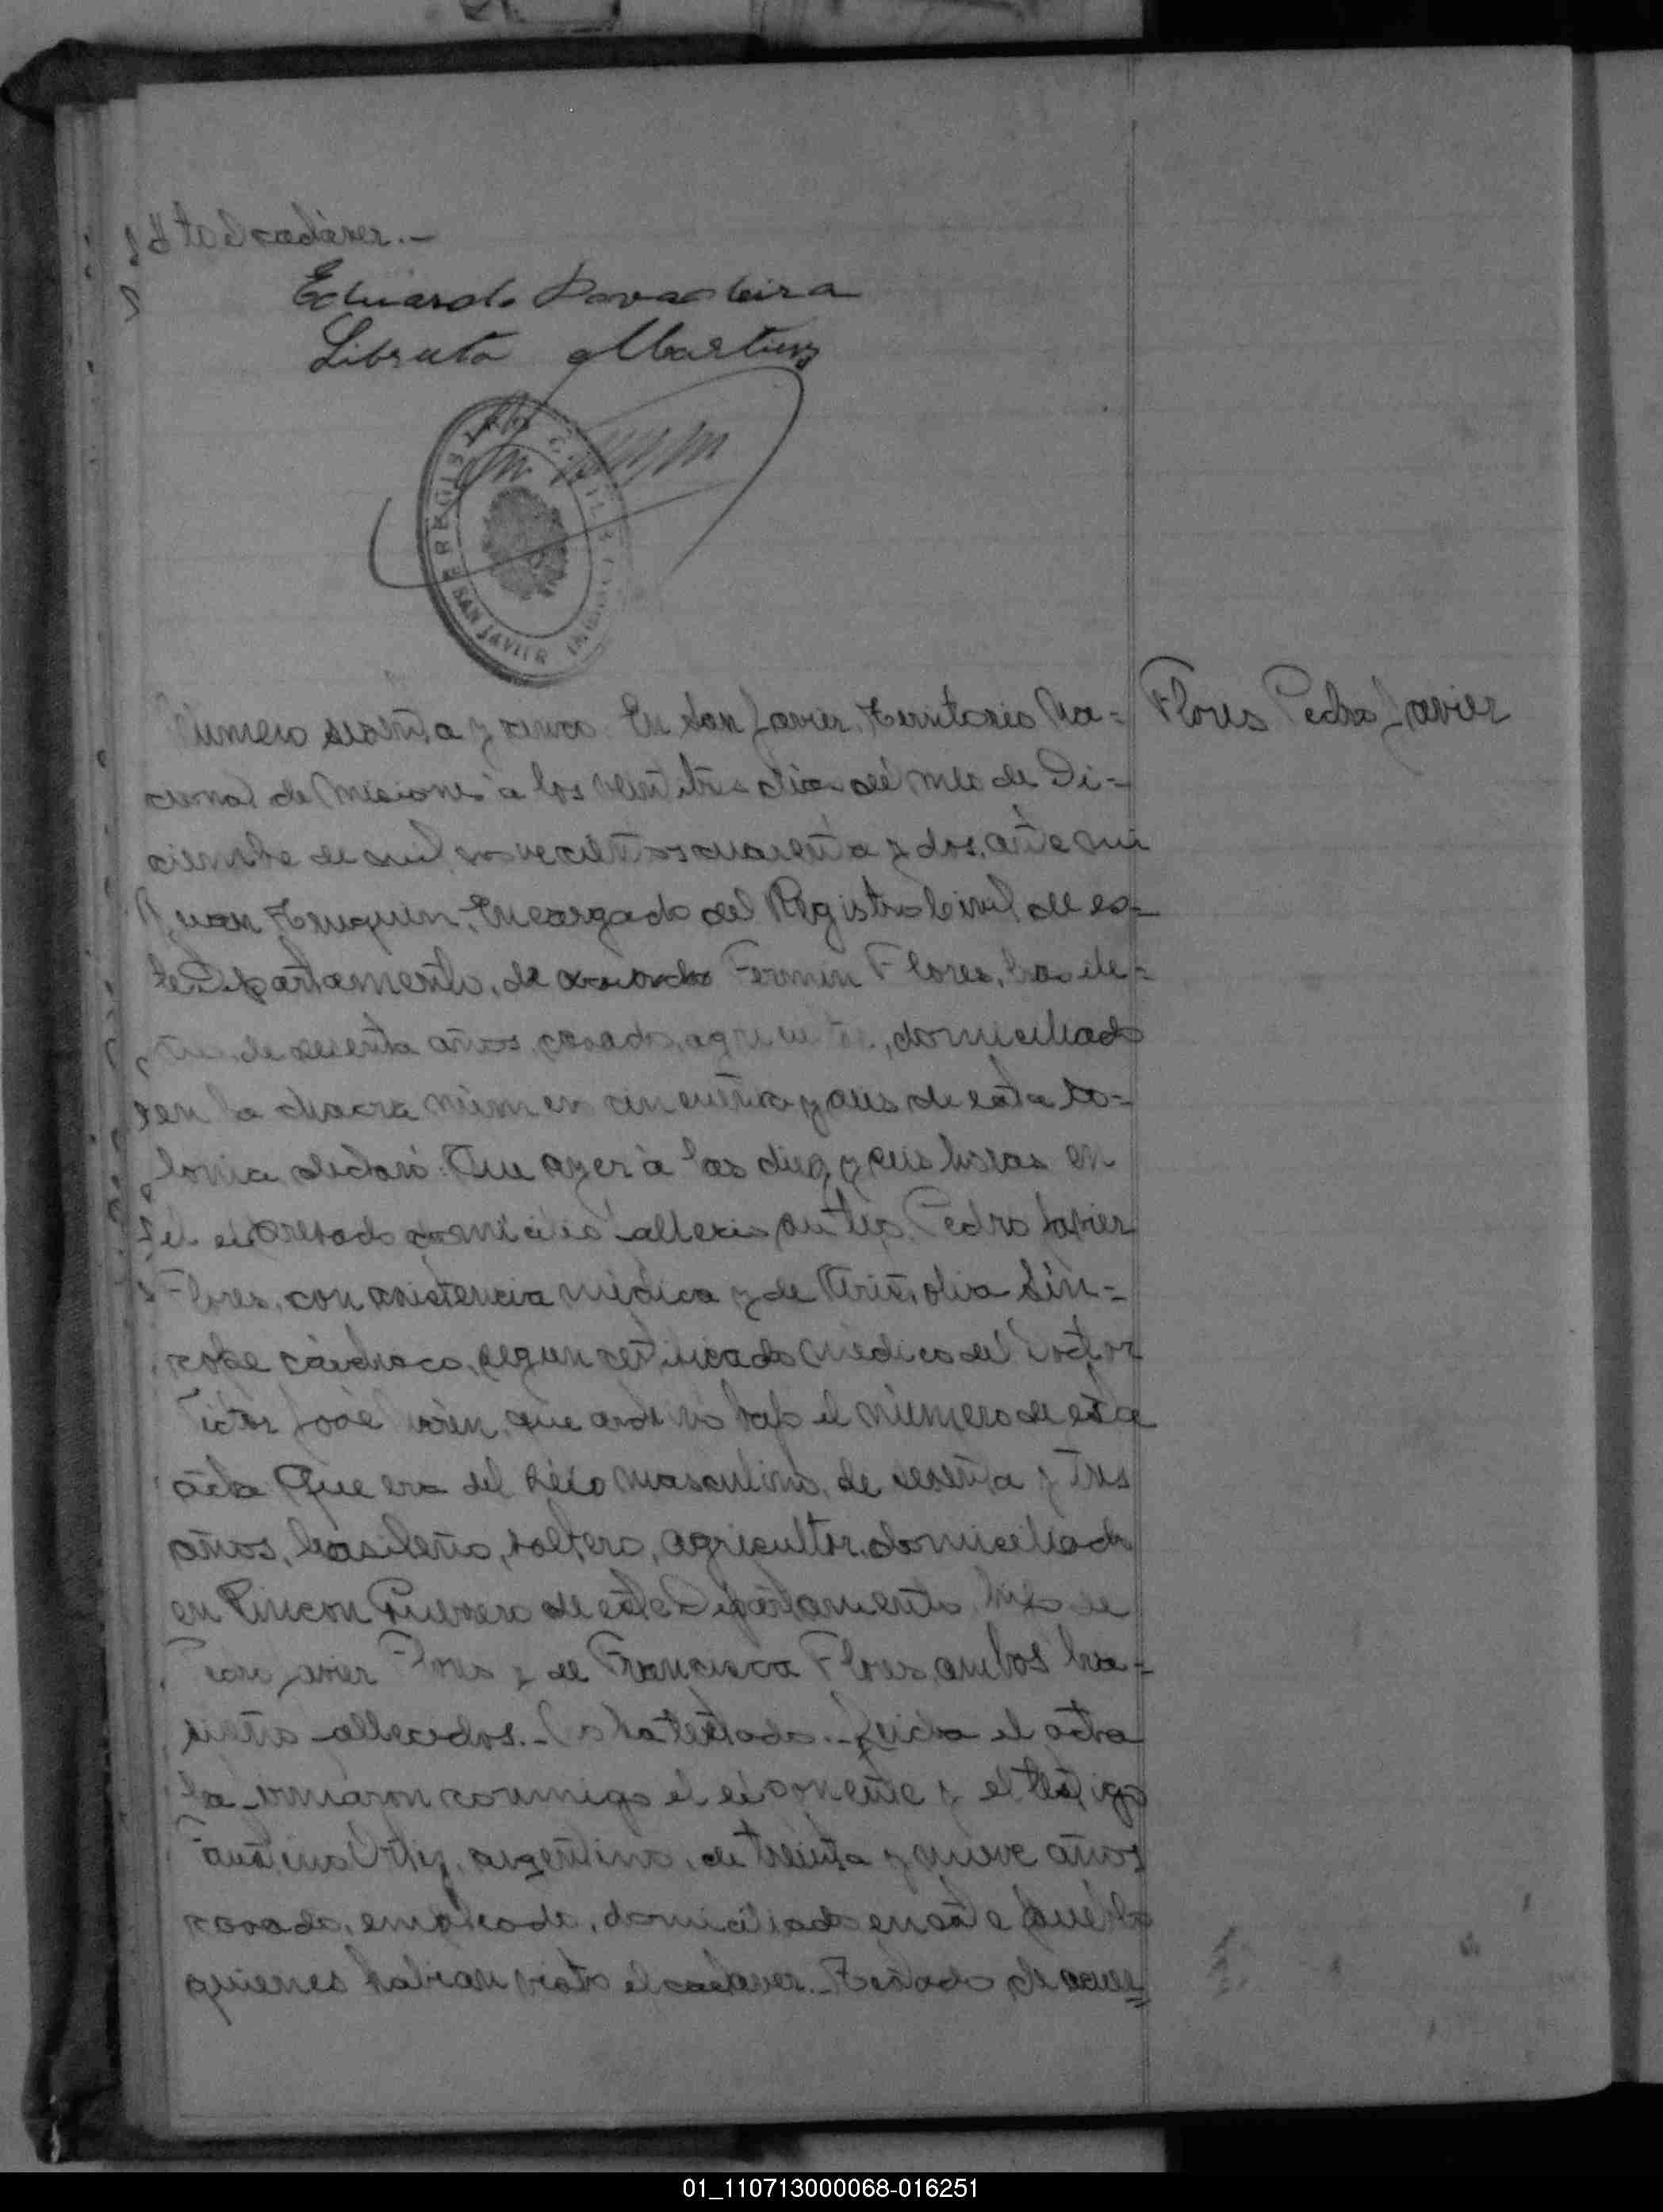 to el cadáver.-
Eduardo
Liberato Martinez
REGISTRO CIVIL
SAN JAVIER
Flores Pedro Javier
Número sesenta y cinco. En San Javier, Territorio Na=
cional de Misiones a los veintitres dias del mes de Di=
ciembre de mil novecientos cuarenta y dos, ante mi
Juan, Encargado del Registro Civil de es=
te Departamento, de Fermin Flores, brasile=
de sesenta años, casado, domiciliado
en la chacra número cincuenta y seis de esta Co=
lonia declaró: Que ayer a las diez y seis horas en
el expresado domicilio falleció Pedro Javier
Flores, con asistencia médica y de Sín=
cope cardíaco, segun certificado médico del Doctor
José que archivo bajo el número de esta
acta Que era del sexo masculino, de sesenta y tres
años, brasileño, soltero, agricultor, domiciliado
en Rincon Guerrero de este Departamento, hijo de
Javier Flores y de Francisca Flores, ambos bra=
fallecidos.- No ha testado.- Leida el acta
la firmaron conmigo el exponente y el testigo
Faustino Ortiz, argentino, de treinta y nueve años
casado, empleado, domiciliado en este pueblo
quienes habian visto el cadaver.- Testado: de acuer
01_110713000068-016251